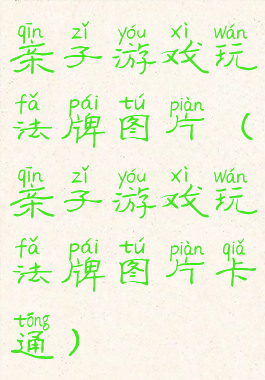 qīn zǐ yóu xì wán
亲子游戏玩
fǎ pái tú piàn
法牌图片（
qīn zǐ yóu xì wán
亲子游戏玩
fǎ pái tú piàn qiǎ
法牌图片卡
tōng
通）